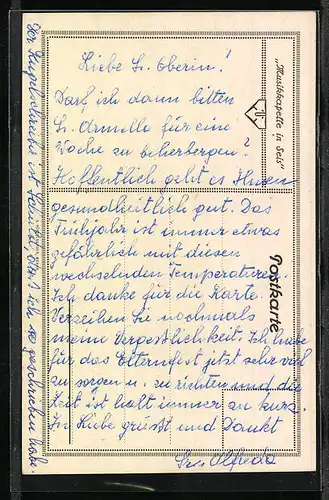 Liebe Sr. Oberin!
Darf ich dann bitten
Sr. Armella für eine
Woche zu beherbergen?
Hoffentlich geht es Ihnen
gesundheitlich gut. Das
Frühjahr ist immer etwas
gefährlich mit diesen
wechselnden Temperaturen.
Ich danke für die Karte.
Verzeihen Sie nochmals
meine Vergesslichkeit. Ich habe
für das Elternfest jetzt sehr viel
zu sorgen u. zu richten und die
Zeit ist halt immer zu kurz.
In Liebe grüsst und dankt
Sr. Alfreda
ist ich so geschrieben habe.
„Musikkapelle in Seis"
Postkarte